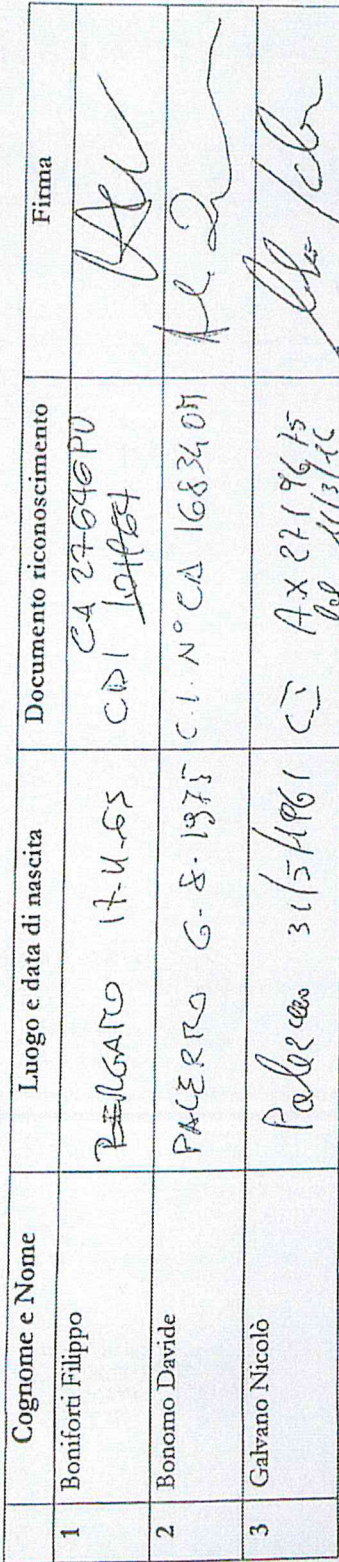 Cognome e Nome Luogo e data di nascita Documento riconoscimento Firma
1 Boniforti Filippo BERGAMO CA 27646PU
CDI
2 Bonomo Davide PALERMO 6-8-1975 C.I. N° CA 16834 0M
3 Galvano Nicolò Palermo 31/5/1961 CI AX 2719675
del 11/3/16